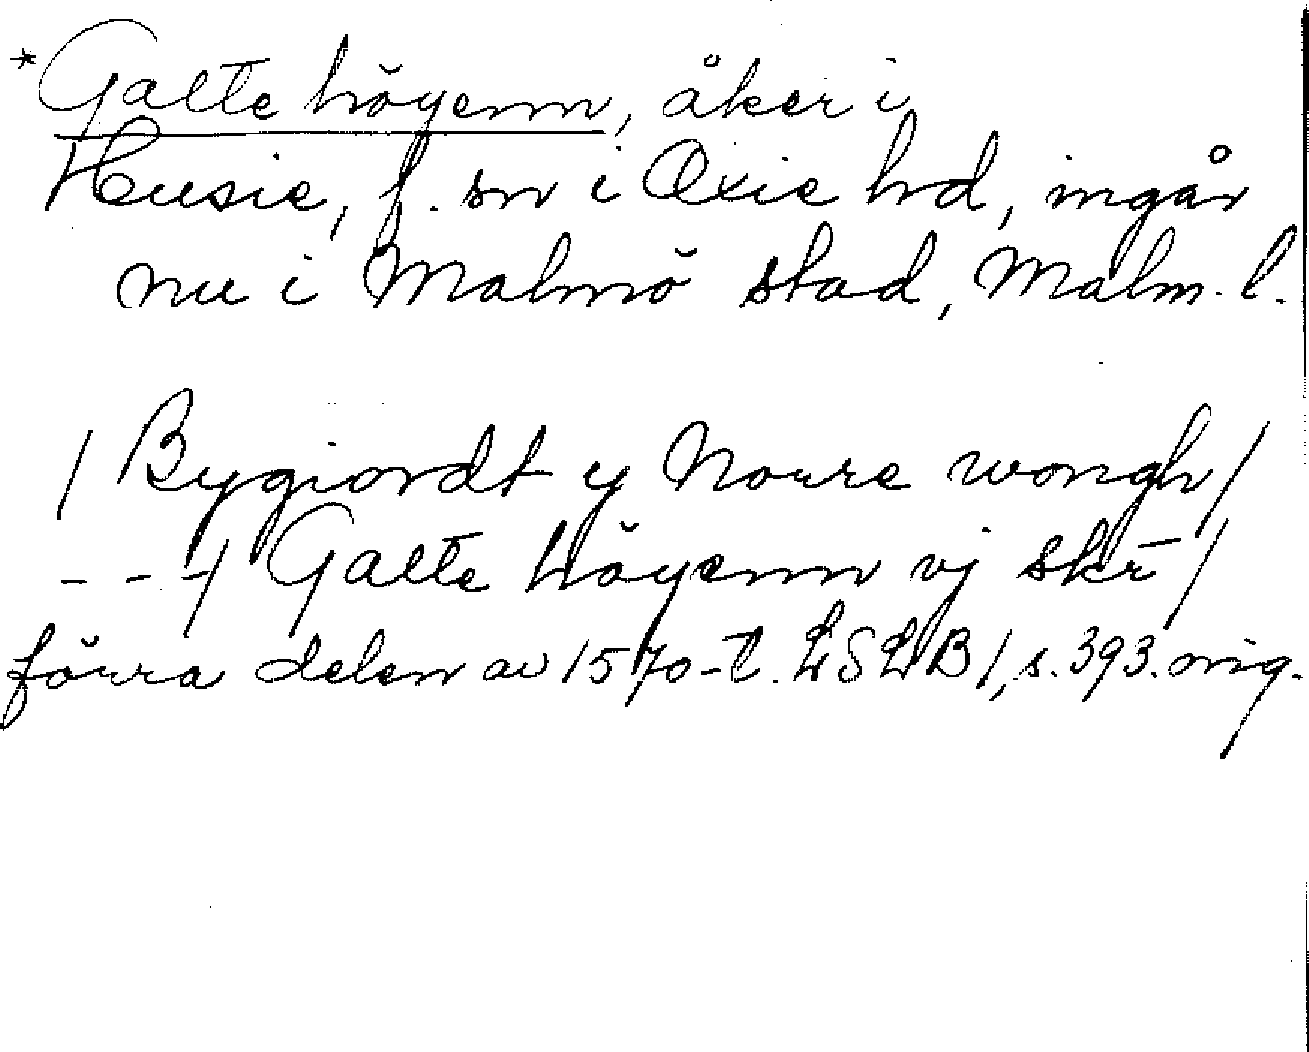 *Galte höyenn, åker i
Husie, f. sn i Oxie hd, ingår
nu i Malmö stad, Malm. l.
/ Bygiordt y Norre wongh /
- - -/ Galte höyenn vj skr̄ /
förra delen av 1570-t. LSLB 1, s. 393. orig.